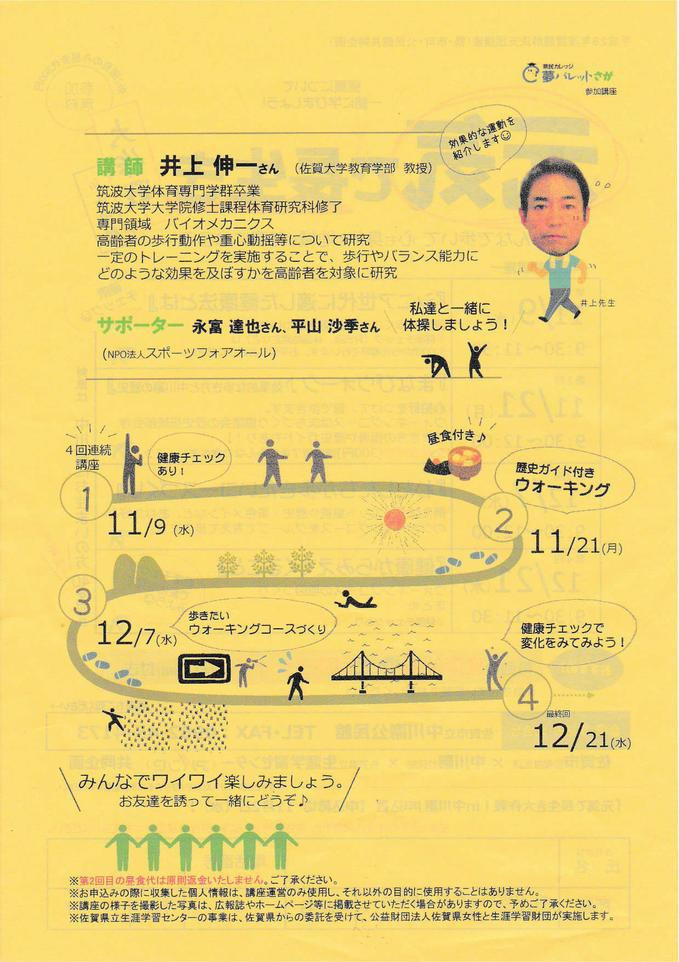 県民カレッジ
夢パレットさが
参加講座
効果的な運動を
紹介します
講師 井上 伸一さん (佐賀大学教育学部 教授)
筑波大学体育専門学群卒業
筑波大学大学院修士課程体育研究科修了
専門領域 バイオメカニクス
高齢者の歩行動作や重心動揺等について研究
一定のトレーニングを実施することで、歩行やバランス能力に
どのような効果を及ぼすかを高齢者を対象に研究
井上先生
サポーター 永富 達也さん、平山 沙季さん
(NPO法人スポーツフォアオール)
私達と一緒に
体操しましょう!
4回連続
講座
健康チェック
あり!
昼食付き♪
歴史ガイド付き
ウォーキング
1
11/9 (水)
2
11/21(月)
3
12/7(水)
歩きたい
ウォーキングコースづくり
健康チェックで
変化をみてみよう!
4
最終回
12/21(水)
みんなでワイワイ楽しみましょう。
お友達を誘って一緒にどうぞ♪
※第2回目の昼食代は原則返金いたしません。ご了承ください。
※お申込みの際に収集した個人情報は、講座運営のみ使用し、それ以外の目的に使用することはありません。
※講座の様子を撮影した写真は、広報誌やホームページ等に掲載させていただく場合がありますので、予めご了承ください。
※佐賀県立生涯学習センターの事業は、佐賀県からの委託を受けて、公益財団法人佐賀県女性と生涯学習財団が実施します。